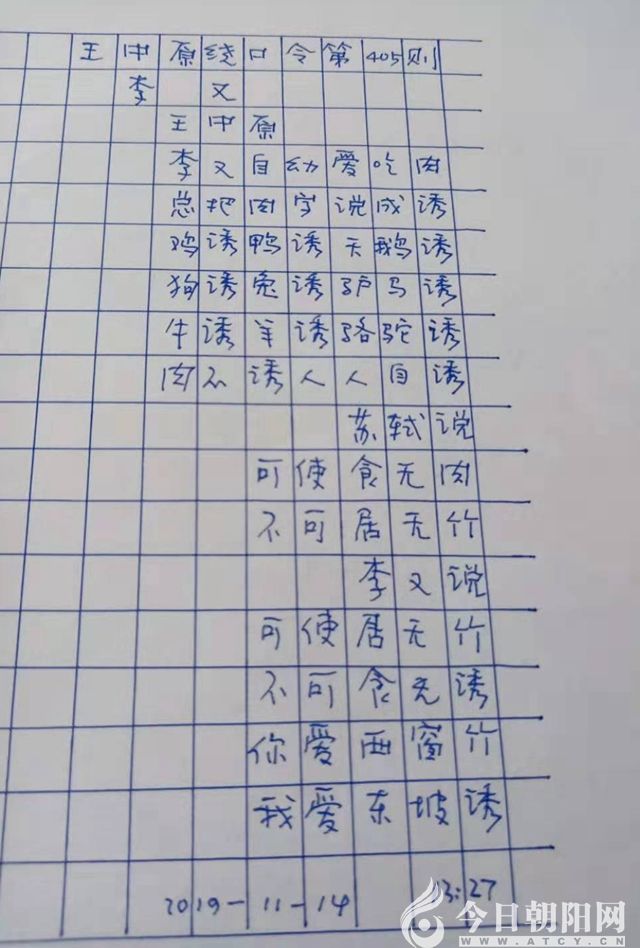 王中原绕口令第405则
李又
王中原
李又自幼爱吃肉
总把肉字说成诱
鸡诱鸭诱天鹅诱
狗诱兔诱驴马诱
牛诱羊诱骆驼诱
肉不诱人人自诱
苏轼说
可使食无肉
不可居无竹
李又说
可使居无竹
不可食无诱
你爱西窗竹
我爱东坡诱
2019-11-14 13:27
今日朝阳网
WWW.ATCY.CN